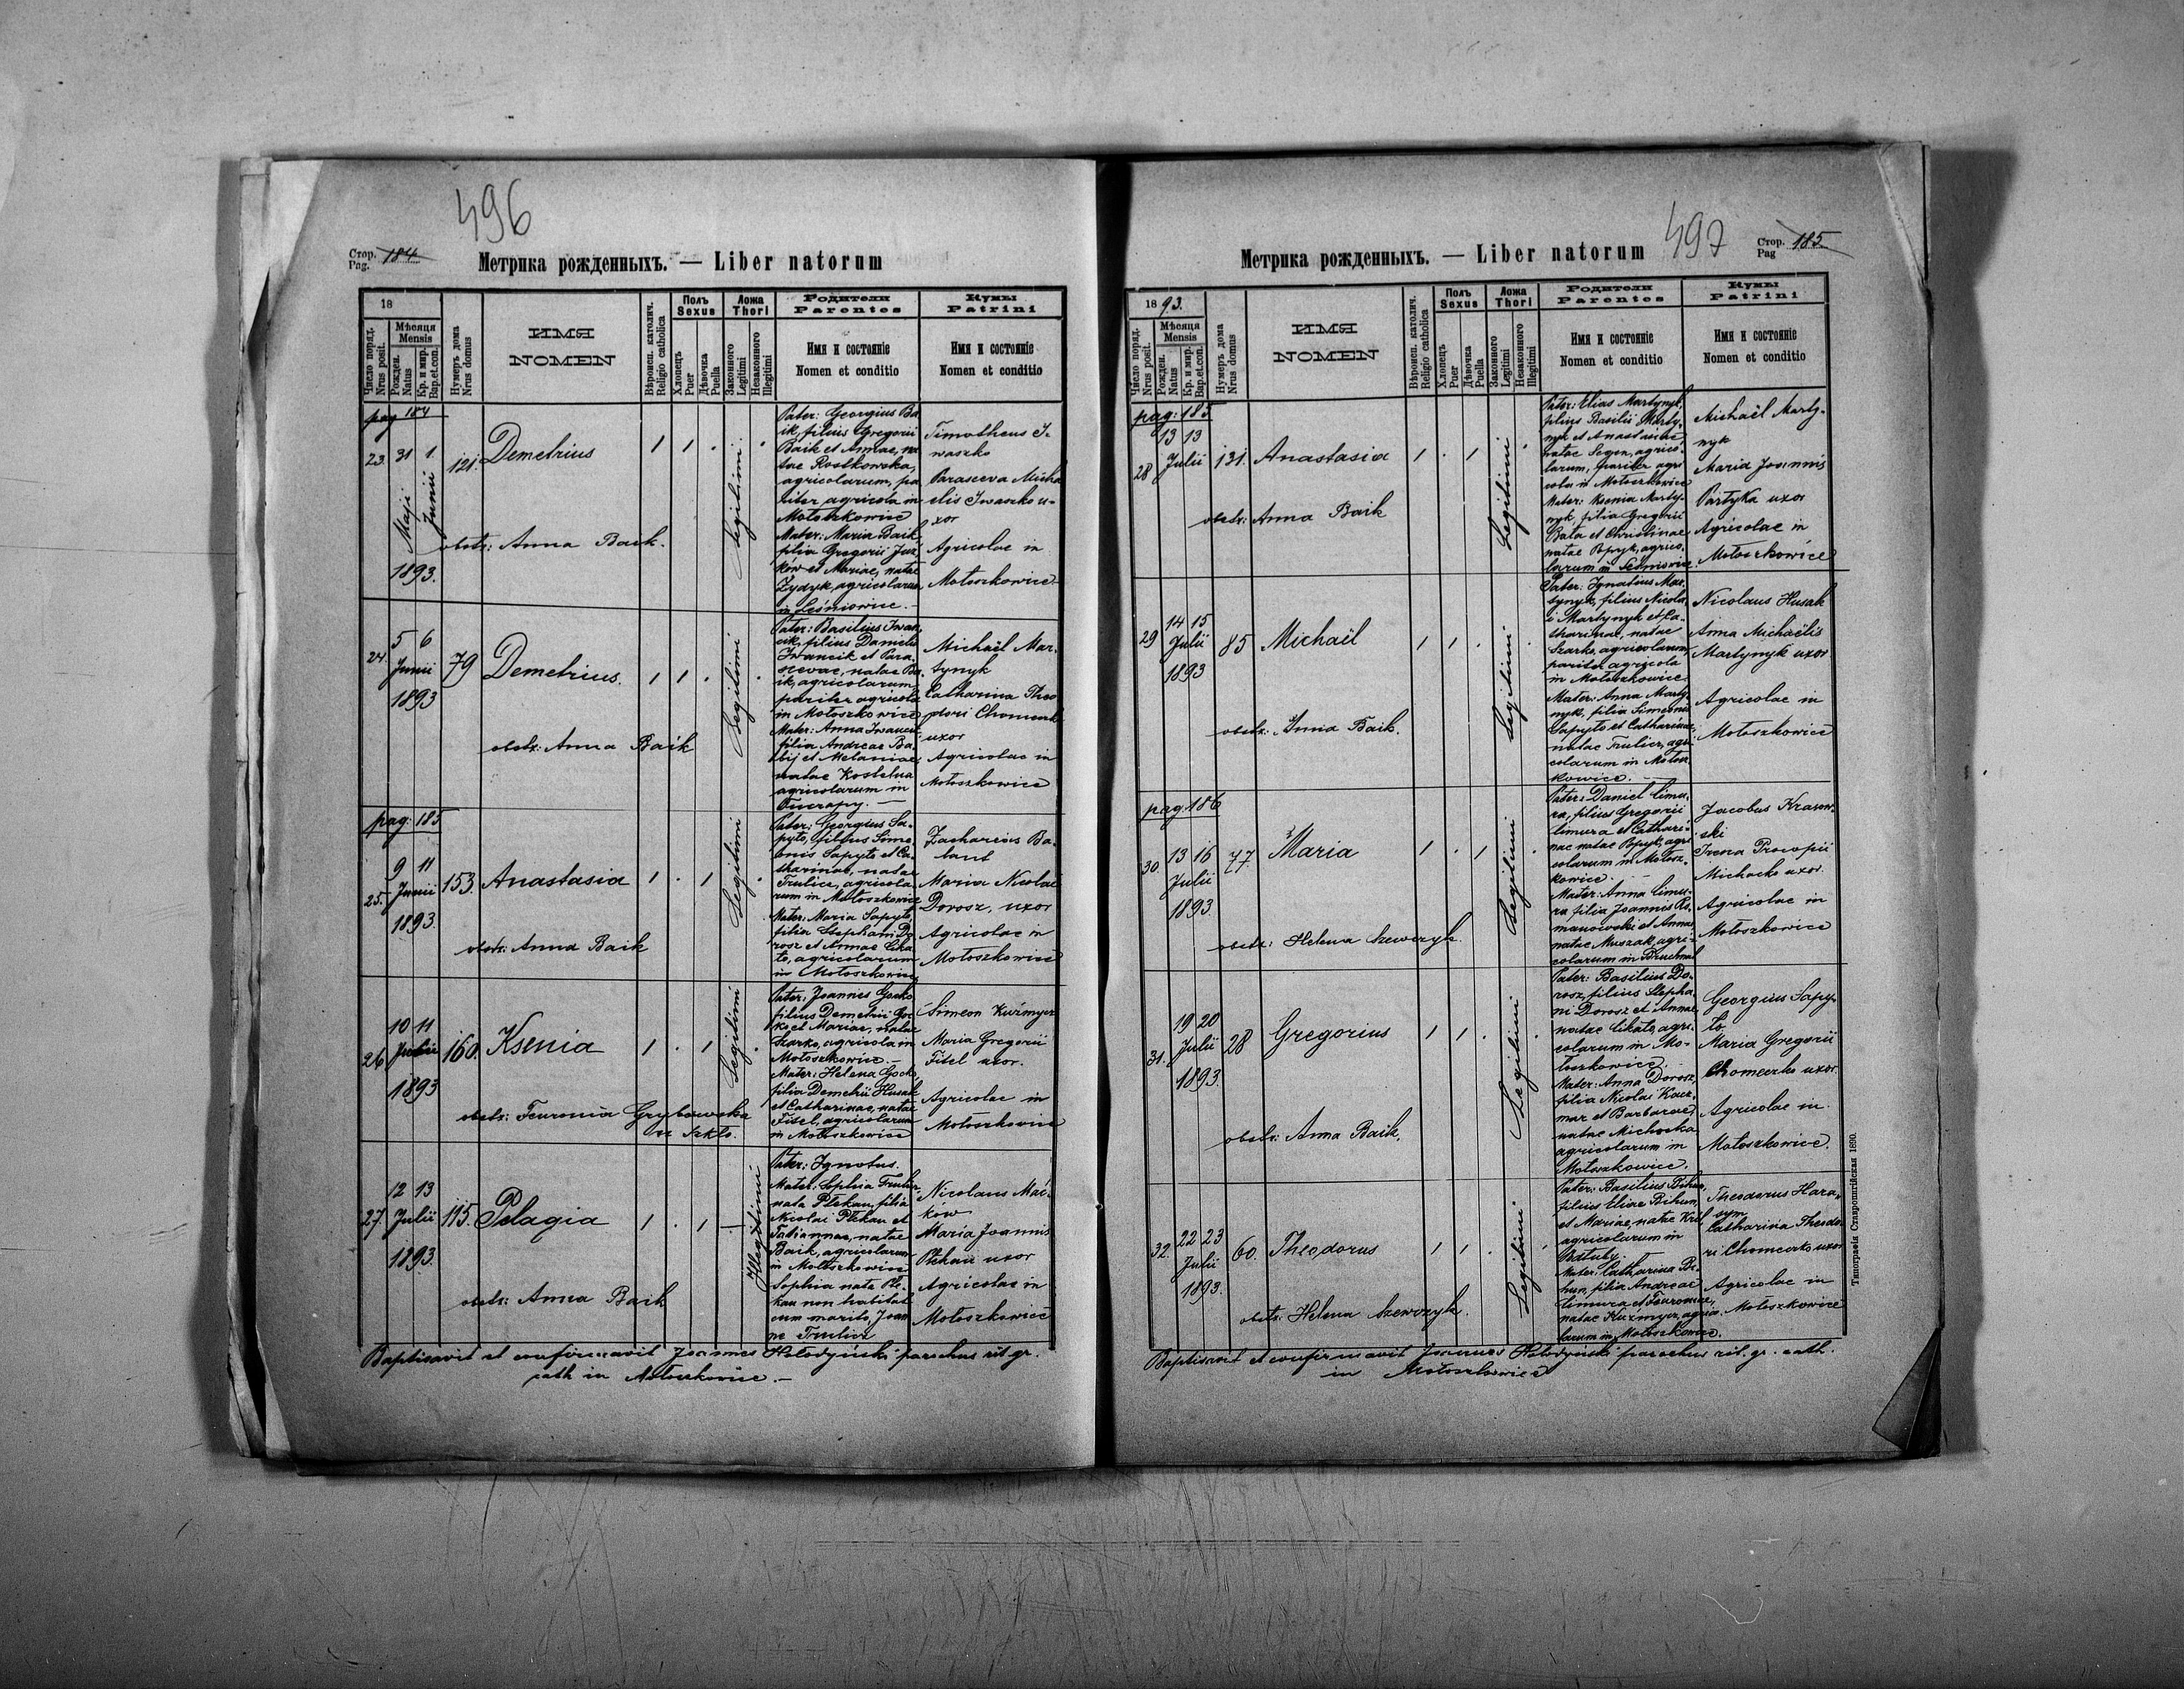 496
Стор. 184
Pag.
Метрика рожденныхъ. — Liber natorum
18
Число поряд.
Nrus posit.
Мѣсяця
Mensis
Рожден.
Natus
Кр. и мир.
Bap.et.con.
Нумеръ дома
Nrus domus
ИМЯ
NOMEN
Вѣроисп. католич.
Religio catholica
Полъ
Sexus
Хлопецъ
Puer
Дѣвочка
Puella
Ложа
Thori
Законного
Legitimi
Незаконного
Illegitimi
Родители
Parentes
Имя и состояніе
Nomen et conditio
Кумы
Patrini
Имя и состояніе
Nomen et conditio
pag 184
23. 31 1.
Maji Junii
1893.
121.
Demetrius
obstr: Anna Baik.
Legitimi
Pater: Georgius Ba
ik, filius Gregorii
Baik et Annae, na
tae Rostkowska,
agricolarum, pa
riter agricola in
Mołoszkowice
Mater: Maria Baik
filia Gregorii Juź
ków et Mariae, natae
Żydyk, agricolarum
in Leśniowice.
Timotheus I-
waszko
Parasceva Micha
elis Iwaszko u-
xor
Agricolae in
Mołoszkowice
24. 5 6
Junii
1893
79
Demetrius.
obstr: Anna Baik
Legitimi
Pater: Basilius Iwan
cik, filius Danielis
Iwancik et Para-
scevae, natae Ba-
ik, agricolarum,
pariter agricola
in Mołoszkowice
Mater: Anna Iwancik
filia Andreae Ba-
bij et Melaniae,
natae Kostelna
agricolarum in
Michaël Mar-
tynyk
Catharina Theo
dori Chomecrk
uxor
Agricolae in
Mołoszkowice
pag: 185
25. 9 11
Junii
1893.
153.
Anastasia
obstr: Anna Baik
Legitimi
Pater: Georgius Sa-
pyto, filius Sime
onis Sapyto et Ca-
tharinae, natae
Trulicz, agricola
rum in Mołoszkowice
Mater: Maria Sapyto,
filia Stephani Do
rosz et Annae Cika
to, agricolarum
in Mołoszkowice
Zacharcius Ba-
Maria Nicolai
Dorosz, uxor
Agricolae in
Mołoszkowice
26 10 11
Julii
1893
160.
Ksenia
obstr: Feuronia Grybowska
in Szkło.
Legitimi
Pater: Joannes Gocko
filius Demetrii Goc
ko et Mariae, natae
Szarko, agricola in
Mołoszkowice.
Mater: Helena Gocko
filia Demetrii Husak
et Catharinae, natae
Fitel, agricolarum
in Mołoszkowice
Simeon Kuźmycz
Maria Gregorii
Fitel uxor.
Agricolae in
Mołoszkowice
27. 12 13
Julii
1893.
115.
Pelagia
obstr: Anna Baik
Illegitimi
Pater: Ignotus.
Mater: Sophia Trulicz
nata Ptekan, filia
Nicolai Ptekan et
Tatiannae, natae
Baik, agricolarum
in Mołoszkowice
Sophia nata Pte-
kan non habitat
cum marito, Joan
ne Trulicz
Nicolaus Mać-
kow
Maria Joannis
Ptekan uxor
Agricolae in
Mołoszkowice
Baptisavit et confirmavit Joannes Hołodyński parochus rit. gr.
cath in Mołoszkowice.
497
Стор. 185
Pag
Метрика рожденныхъ. — Liber natorum
1893.
Число поряд.
Nrus posit.
Мѣсяця
Mensis
Рожден.
Natus
Кр. и мир.
Bap.et.con.
Нумеръ дома
Nrus domus
ИМЯ
NOMEN
Вѣроисп. католич.
Religio catholica
Полъ
Sexus
Хлопецъ
Puer
Дѣвочка
Puella
Ложа
Thori
Законного
Legitimi
Незаконного
Illegitimi
Родители
Parentes
Имя и состояніе
Nomen et conditio
Кумы
Patrini
Имя и состояніе
Nomen et conditio
pag: 185
28 13 13
Julii
131.
Anastasia
obstr: Anna Baik
Legitimi
Pater: Elias Martynyk,
filius Basilii Marty-
nyk et Anastasiae
natae Segen, agrico-
larum, pariter agri
cola in Mołoszkowice
Mater: Ksenia Marty-
nyk, filia Gregorii
Bata et Christinae
natae Popyk, agrico-
larum in
Michaël Marty-
nyk
Maria Joannis
Partyka uxor
Agricolae in
Mołoszkowice
29 14 15
Julii
1893
85
Michaël
obstr: Anna Baik.
Legitimi
Pater: Ignatius Mar-
tynyk, filius Nicola-
i Martynyk et Ca-
tharinae, natae
Szarko, agricolarum,
pariter agricola
in Mołoszkowice.
Mater: Anna Marty-
nyk, filia Simeonis
Sapyto et Catharinae,
natae Trulicz, agri
colarum in Mołosz-
kowice.
Nicolaus Husak
Anna Michaëlis
Martynyk uxor
Agricolae in
Mołoszkowice
pag. 186
30. 13 16
Julii
1893.
77.
Maria
obstr: Helena Szewczyk.
Legitimi
Pater: Daniel Cimu-
ra, filius Gregorii
Cimura et Cathari-
nae natae Popyk, agri
colarum in Mołosz-
kowice.
Mater: Anna Cimu-
ra filia Joannis Ro-
manowski et Annae
natae Muszak, agri-
colarum in Bruchnal
Jacobus Krasow-
ski
Irena Procopii
Michocko uxor.
Agricolae in
Mołoszkowice
31. 19 20
Julii
1893.
28
Gregorius
obstr: Anna Baik,
Legitimi
Pater: Basilius Do-
rosz, filius Stepha
ni Dorosz et Annae
natae Cikato, agri-
colarum in Mo-
łoszkowice.
Mater: Anna Dorosz,
filia Nicolai Kacz-
mar et Barbarae
natae Michocka
agricolarum in
Mołoszkowice.
Georgius Sapy-
to
Maria Gregorii
Chomecrko uxor.
Agricolae in
Mołoszkowice.
32. 22 23
Julii
1893.
60.
Theodorus
obstr: Helena Szewczyk.
Legitimi
Pater: Basilius Bihun,
filius Eliae Bihun,
et Mariae, natae Kril,
agricolarum in
Mater: Catharina Bi-
hun, filia Andreae
Cimura et Feuroniae,
natae Kuźmycz, agrico-
larum in Mołoszkowice.
Theodorus Hara-
sym
Catharina Theodo-
ri Chomecrko uxor
Agricolae in
Mołoszkowice
Baptisavit et confirmavit Joannes Hołodyński parochus rit. gr. cath.
in Mołoszkowice
Типографія Ставропигійская 1890.